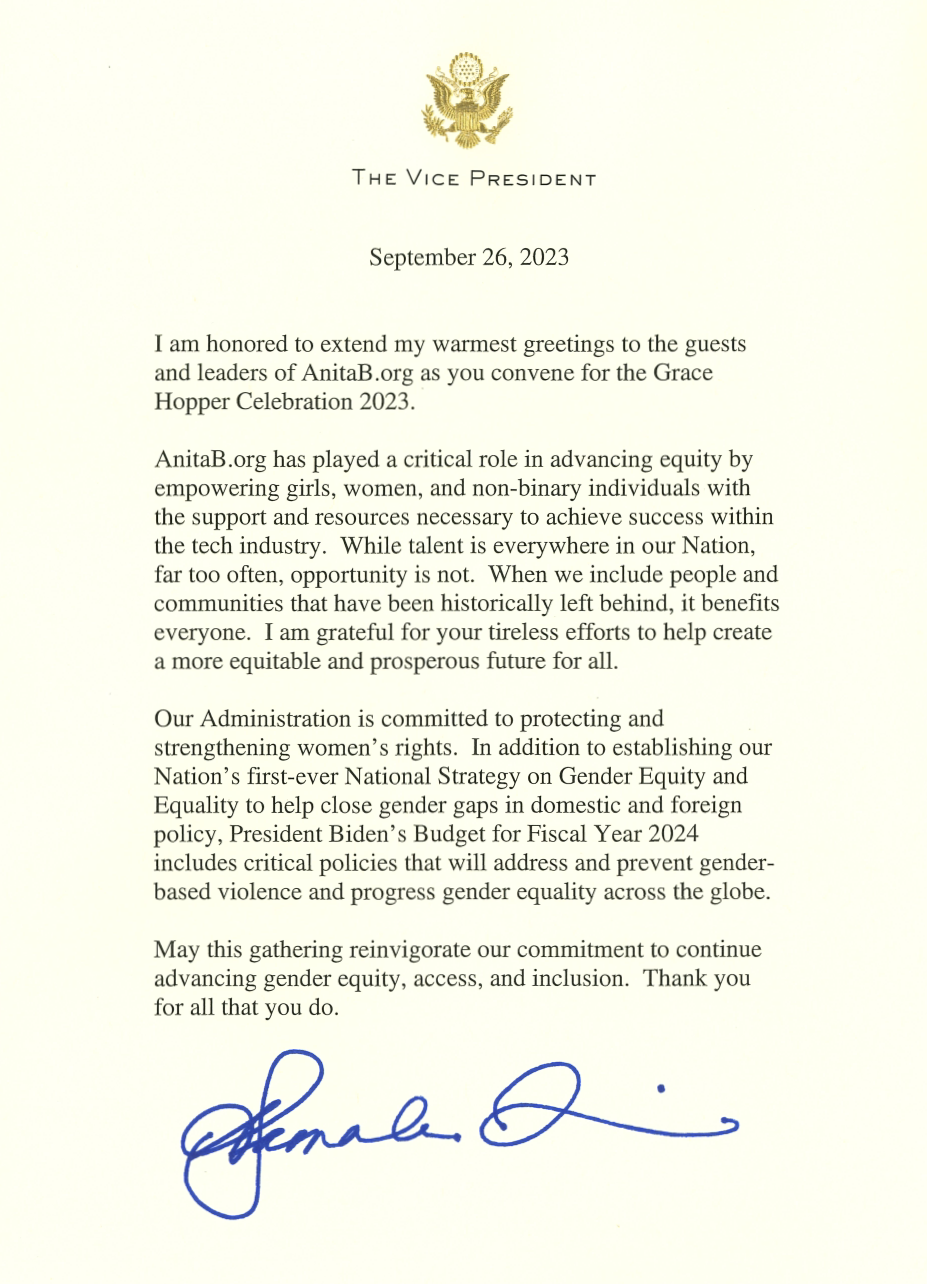 THE VICE PRESIDENT
September 26, 2023
I am honored to extend my warmest greetings to the guests
and leaders of AnitaB.org as you convene for the Grace
Hopper Celebration 2023.
AnitaB.org has played a critical role in advancing equity by
empowering girls, women, and non-binary individuals with
the support and resources necessary to achieve success within
the tech industry.  While talent is everywhere in our Nation,
far too often, opportunity is not.  When we include people and
communities that have been historically left behind, it benefits
everyone.  I am grateful for your tireless efforts to help create
a more equitable and prosperous future for all.
Our Administration is committed to protecting and
strengthening women's rights.  In addition to establishing our
Nation's first-ever National Strategy on Gender Equity and
Equality to help close gender gaps in domestic and foreign
policy, President Biden's Budget for Fiscal Year 2024
includes critical policies that will address and prevent gender-
based violence and progress gender equality across the globe.
May this gathering reinvigorate our commitment to continue
advancing gender equity, access, and inclusion.  Thank you
for all that you do.